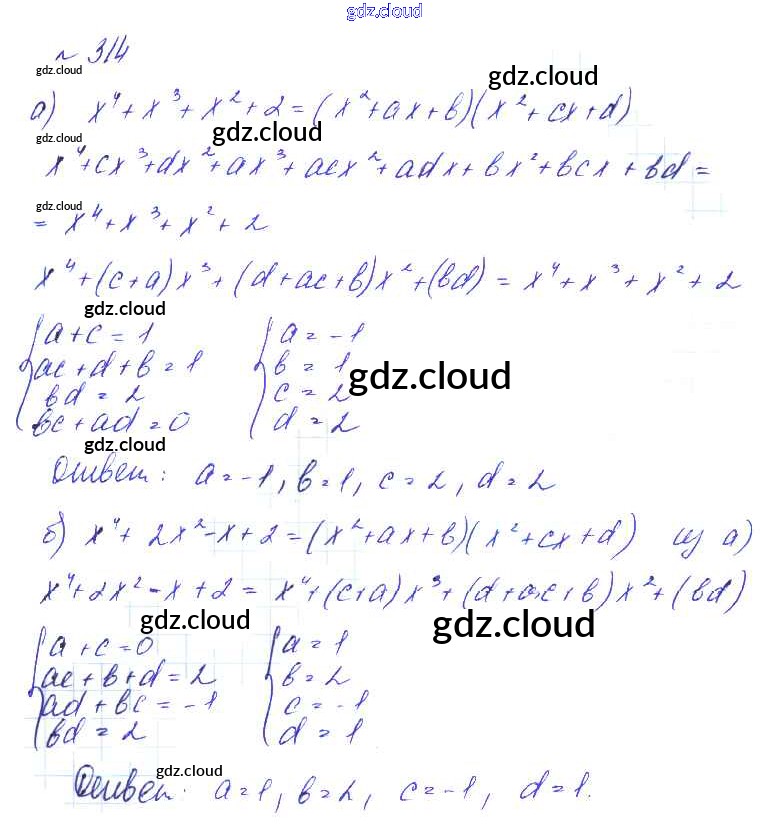 gdz.cloud
№ 314
gdz.cloud
gdz.cloud
а) x⁴ + x³ + x² + 2 = (x² + ax + b)(x² + cx + d)
gdz.cloud
gdz.cloud
x⁴ + cx³ + dx² + ax³ + acx² + adx + bx² + bcx + bd =
gdz.cloud
= x⁴ + x³ + x² + 2
x⁴ + (c + a)x³ + (d + ac + b)x² + (bd) = x⁴ + x³ + x² + 2
gdz.cloud
{ a + c = 1 { a = -1
ac + d + b = 1 b = 1
gdz.cloud
bd = 2 c = 2
bc + ad = 0 d = 2
gdz.cloud
Ответ: a = -1, b = 1, c = 2, d = 2
б) x⁴ + 2x² - x + 2 = (x² + ax + b)(x² + cx + d) из а)
x⁴ + 2x² - x + 2 = x⁴ + (c + a)x³ + (d + ac + b)x² + (bd)
gdz.cloud
gdz.cloud
{ a + c = 0 { a = 1
ac + b + d = 2 b = 2
ad + bc = -1 c = -1
bd = 2 d = 1
gdz.cloud
Ответ: a = 1, b = 2, c = -1, d = 1.